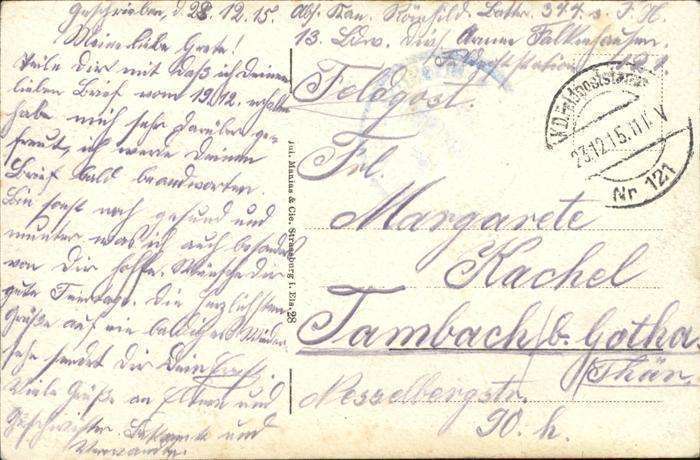 Geschrieben, d. 23.12.15.
Meine liebe Grete!
Teile Dir mit daß ich Deinen
lieben Brief vom 19.12. erhalten
habe mich sehr darüber ge-
freut, ich werde Deinen
Brief bald beantworten.
Bin sonst noch gesund und
munter was ich auch
von Dir hoffe. Wünsche Dir
gute Feiertage. Die herzlichsten
Grüße auf ein baldiges Wieder
sehn sendet Dir Dein Ernst.
Viele Grüße an Eltern und
Geschwister. Bekannte und
Verwandte.
Jul. Manias & Cie. Strassburg i. Els. 28
Abs. Kan. Battr. 344.
13. Ldw. Div. Armee Falkenhausen.
Feldpoststation
Feldpost.
K.D. Feldpoststation
23.12.15.
Nr. 121
Frl.
Margarete
Kachel
Tambach b. Gotha
Thür
Nesselbergstr.